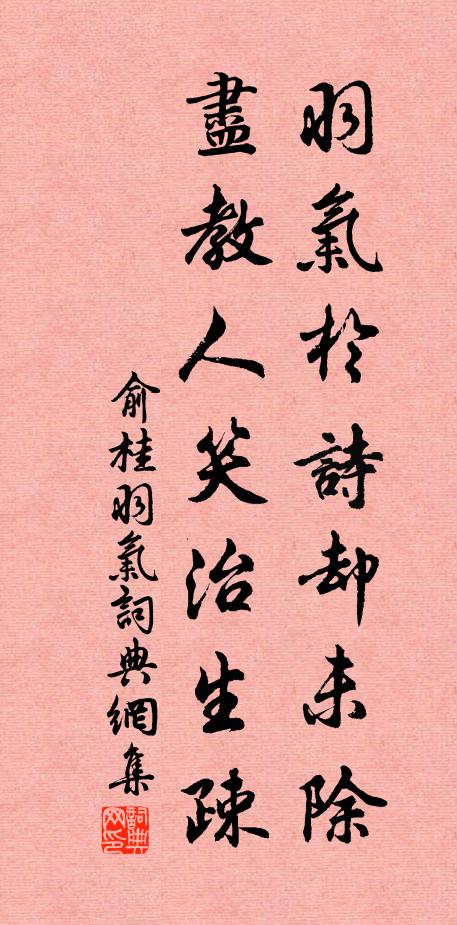 羽氣於詩却未除
盡教人笑治生疎
俞桂羽氣詞典網集
詞典网印